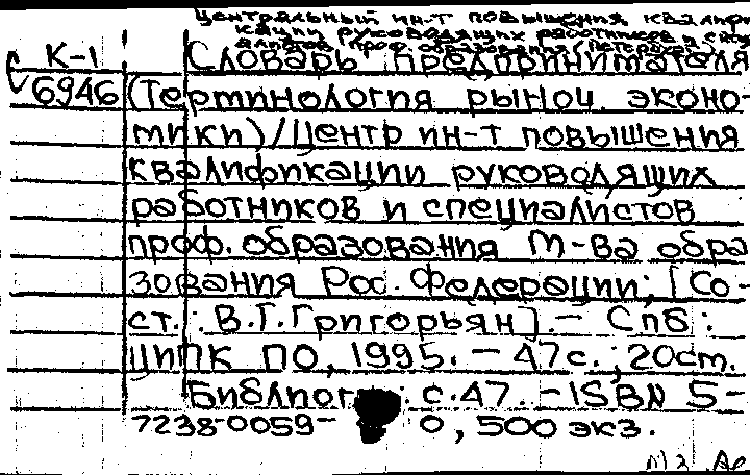 Центральный ин-т повышения квалифи
кации руководящих работников и спец
иалистов проф. образования (Петербург)
К-1 Словарь предпринимателя
6946 (Терминология рыноч. эконо-
мики)/Центр ин-т повышения
квалификации руководящих
работников и специалистов
проф. образования М-ва обра
зования Рос. Федерации; [Со-
ст.: В.Г.Григорьян].- Спб:
ЦИПК ПО, 1995. - 47с.; 20cm.
Библиогр: с.47. -ISBN 5-
7238-0059- 0, 500 экз.